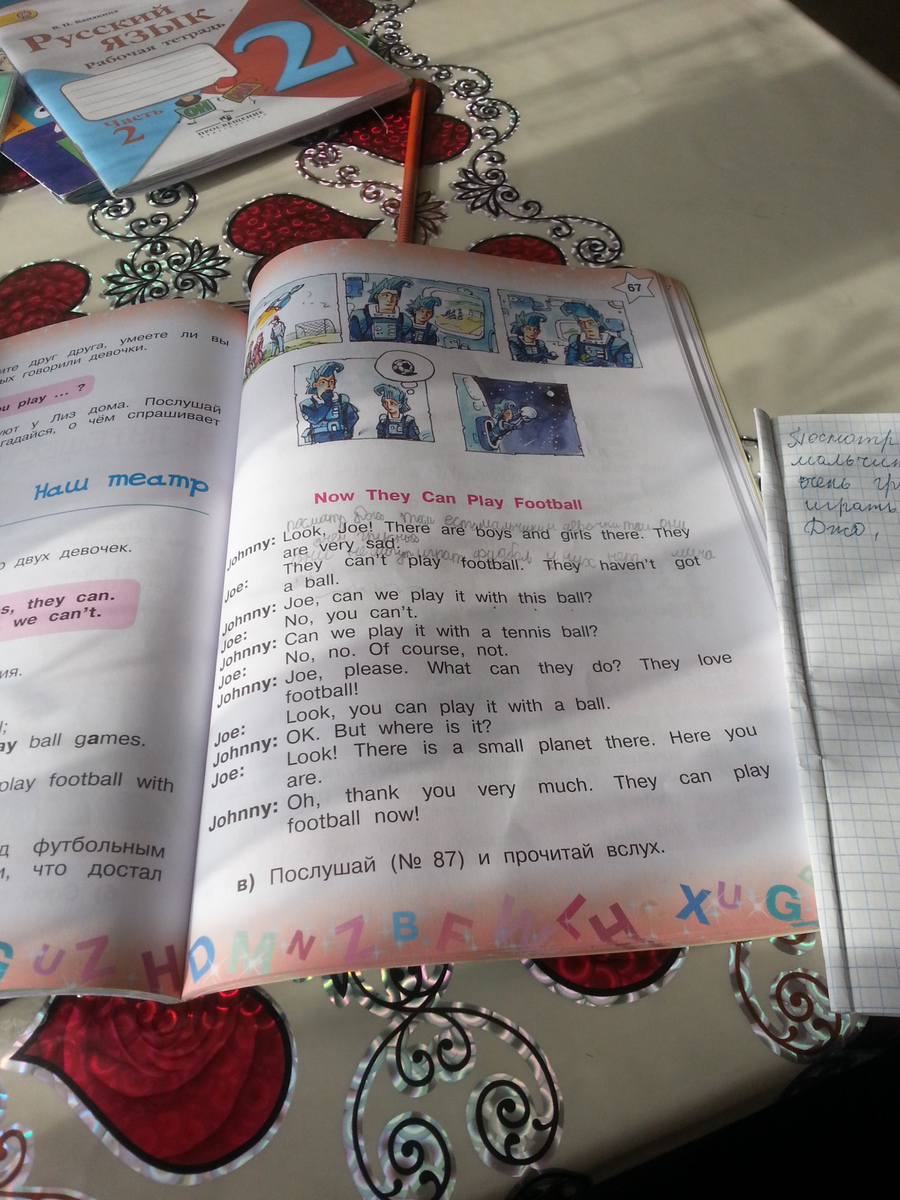 В. П. Канакина
Русский
язык
Рабочая тетрадь
2
Часть
2
ПРОСВЕЩЕНИЕ
ите друг друга, умеете ли вы
ых говорили девочки.
u play ... ?
уют у Лиз дома. Послушай
гадайся, о чём спрашивает
Наш театр
о двух девочек.
s, they can.
we can't.
ия.
l;
ay ball games.
play football with
д футбольным
и, что достал
67
Now They Can Play Football
Johnny: Look, Joe! There are boys and girls there. They
are very sad.
Joe: They can't play football. They haven't got
a ball.
Johnny: Joe, can we play it with this ball?
Joe: No, you can't.
Johnny: Can we play it with a tennis ball?
Joe: No, no. Of course, not.
Johnny: Joe, please. What can they do? They love
football!
Joe: Look, you can play it with a ball.
Johnny: OK. But where is it?
Joe: Look! There is a small planet there. Here you
are.
Johnny: Oh, thank you very much. They can play
football now!
в) Послушай (№ 87) и прочитай вслух.
G U Z H D M N Z B F H X U G
Посмотр
мальчик
очень гр
играть
Джо,